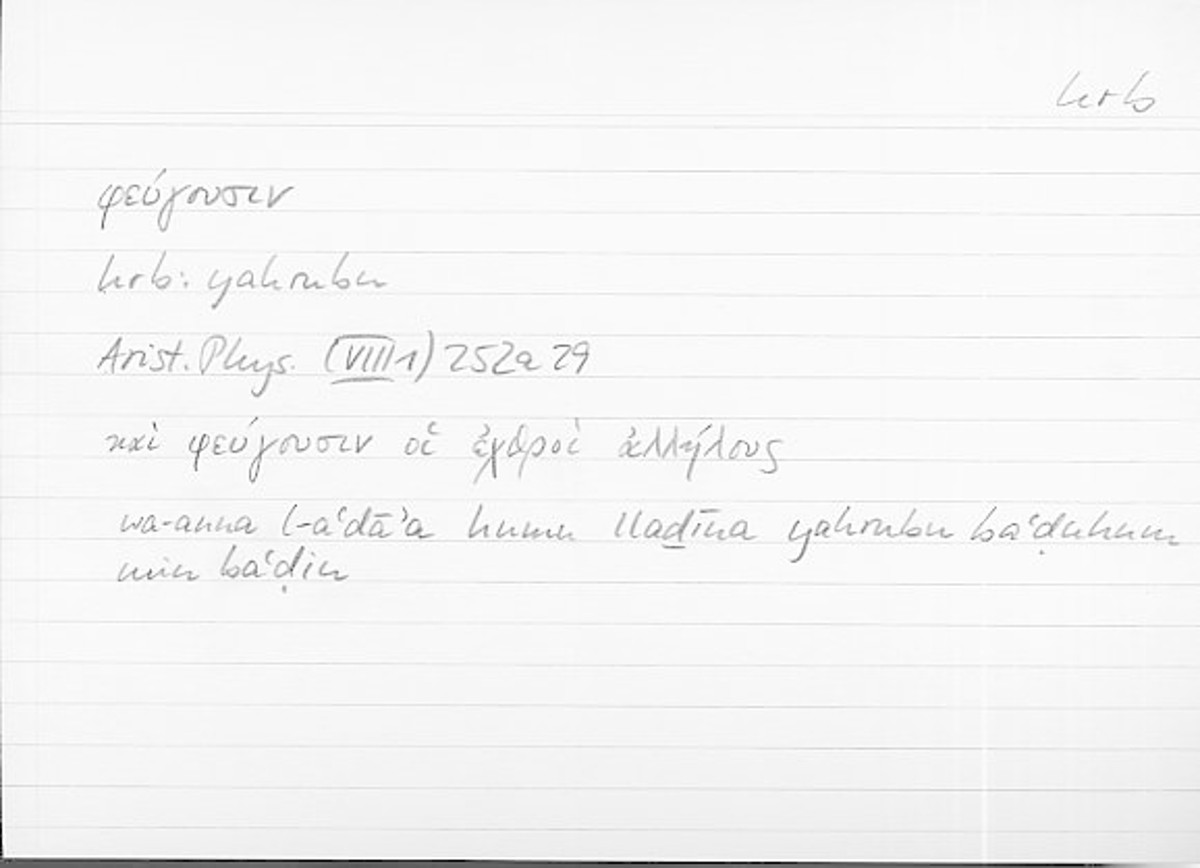 hrb
φεύγουσιν
hrb: yahrubu
Arist. Phys. (VIII 1) 252a 29
καὶ φεύγουσιν οἱ ἐχθροὶ ἀλλήλους
wa-anna l-aʿdāʾa humu lladīna yahrubu baʿḍuhum
min baʿḍin